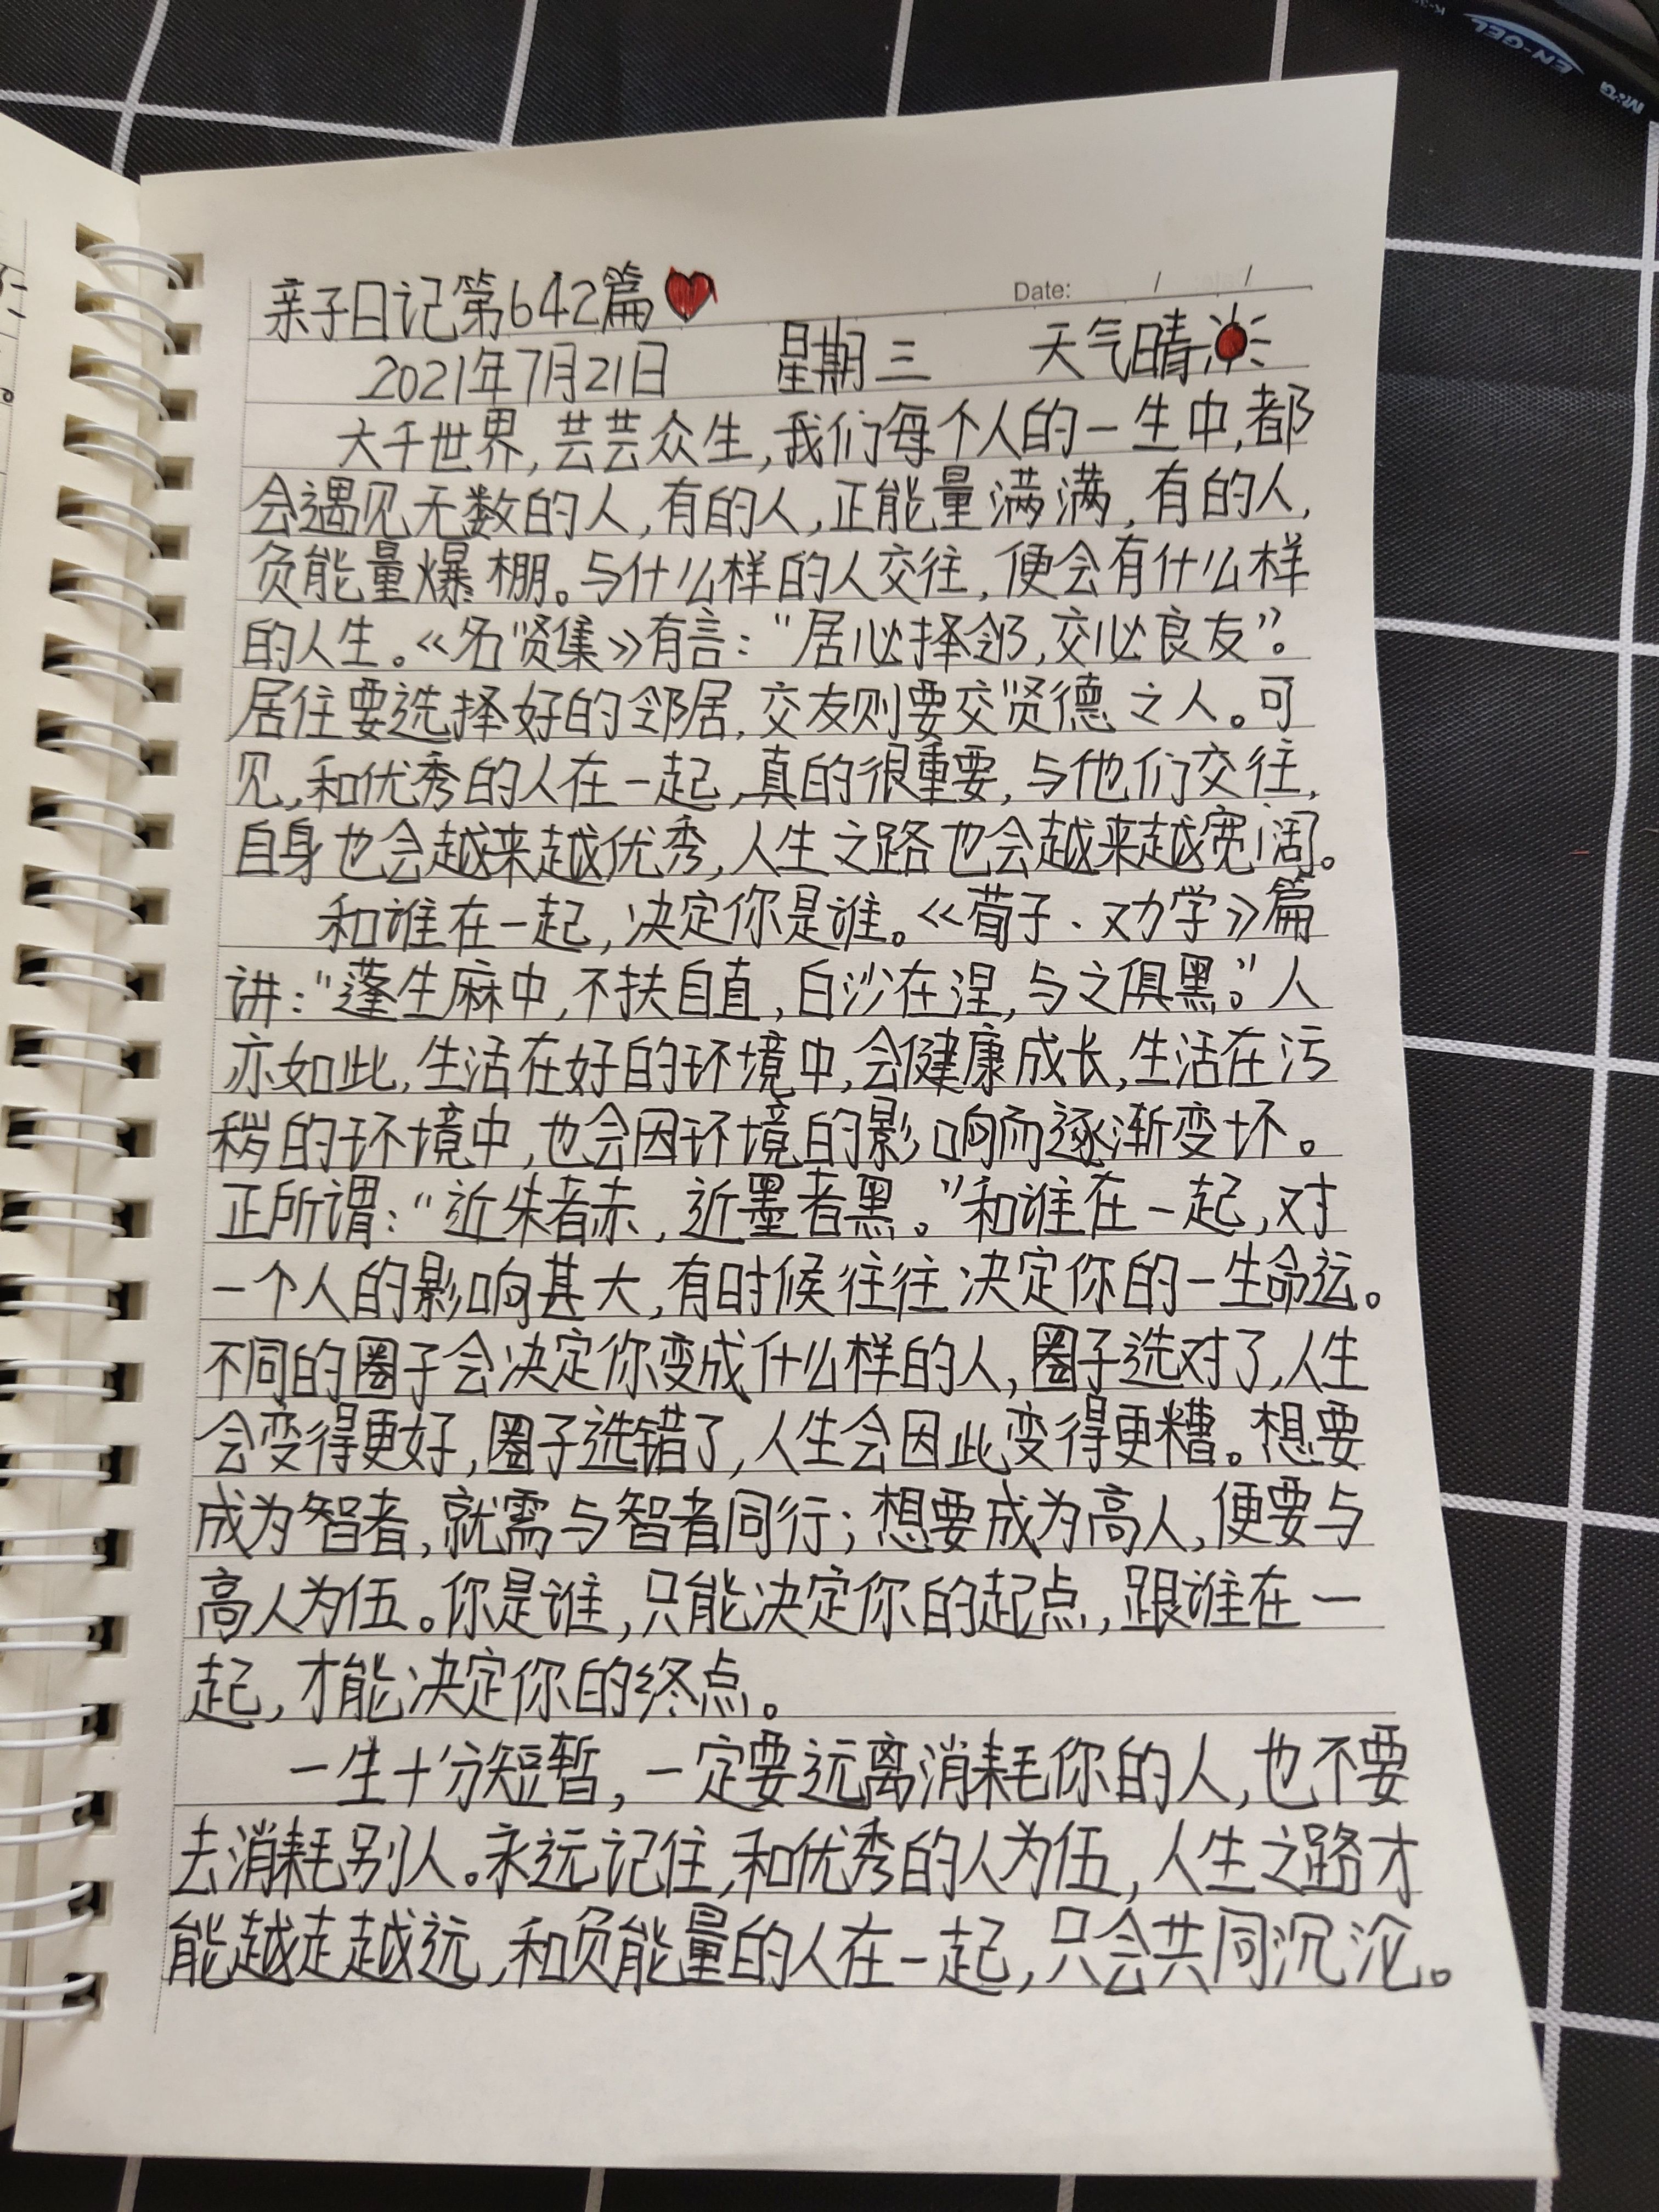 亲子日记第642篇
Date: / /
2021年7月21日 星期三 天气晴
大千世界,芸芸众生,我们每个人的一生中,都
会遇见无数的人,有的人,正能量满满,有的人,
负能量爆棚。与什么样的人交往,便会有什么样
的人生。《名贤集》有言:"居必择邻,交必良友"。
居住要选择好的邻居,交友则要交贤德之人。可
见,和优秀的人在一起,真的很重要,与他们交往,
自身也会越来越优秀,人生之路也会越来越宽阔。
和谁在一起,决定你是谁。《荀子、劝学》篇
讲:"蓬生麻中,不扶自直,白沙在涅,与之俱黑。"人
亦如此,生活在好的环境中,会健康成长,生活在污
秽的环境中,也会因环境的影响而逐渐变坏。
正所谓:"近朱者赤,近墨者黑。"和谁在一起,对
一个人的影响甚大,有时候往往决定你的一生命运。
不同的圈子会决定你变成什么样的人,圈子选对了,人生
会变得更好,圈子选错了,人生会因此变得更糟。想要
成为智者,就需与智者同行;想要成为高人,便要与
高人为伍。你是谁,只能决定你的起点,跟谁在一
起,才能决定你的终点。
一生十分短暂,一定要远离消耗你的人,也不要
去消耗别人。永远记住,和优秀的人为伍,人生之路才
能越走越远,和负能量的人在一起,只会共同沉沦。
EN-GEL
M&G